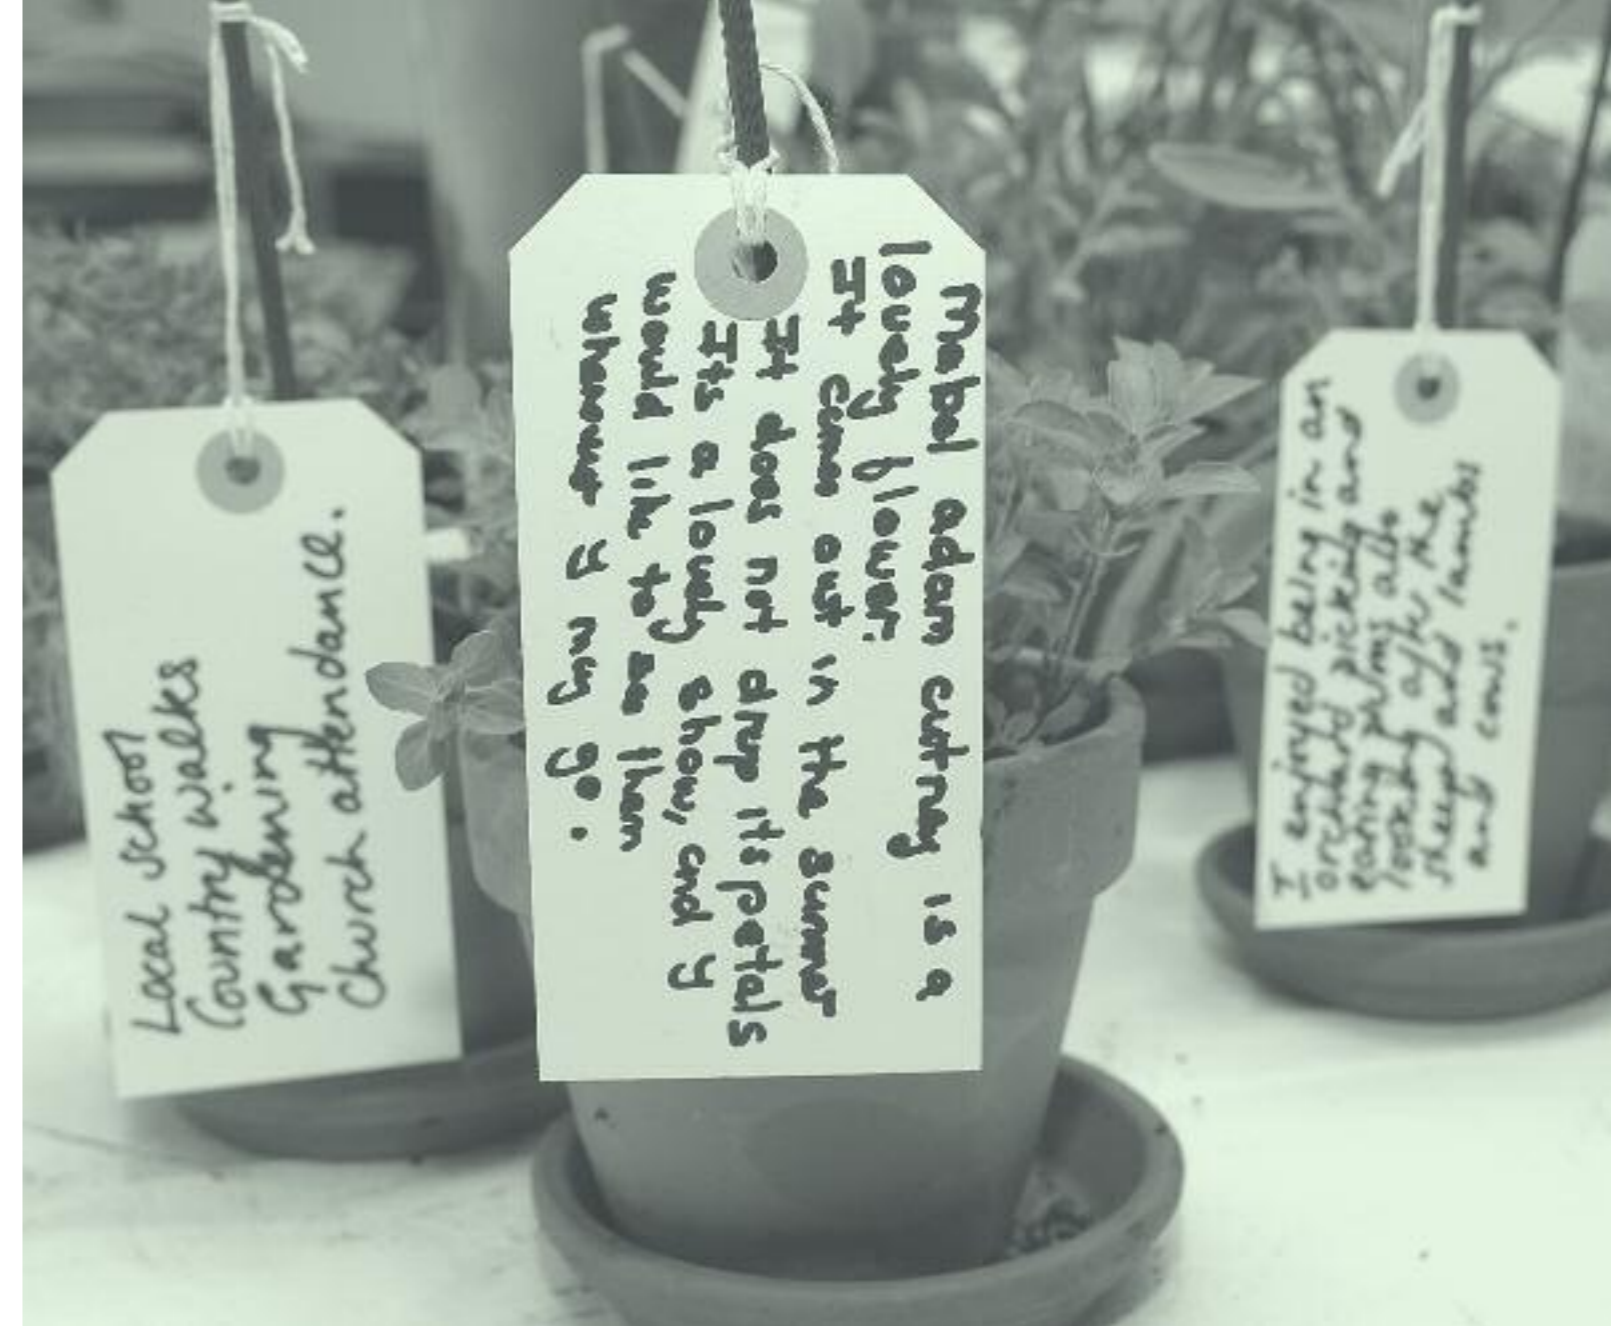 Local school
Country walks
Gardening
Church attendance.
Mabel adam cutney is a
lovely flower.
It cums out in the summer
It does not drop its petals
Its a lovely show, and y
would like to be them
whanour y my go.
I enjoyed being in an
orchard picking and
eating plums also
looking after the
sheep and lambs
and cows.